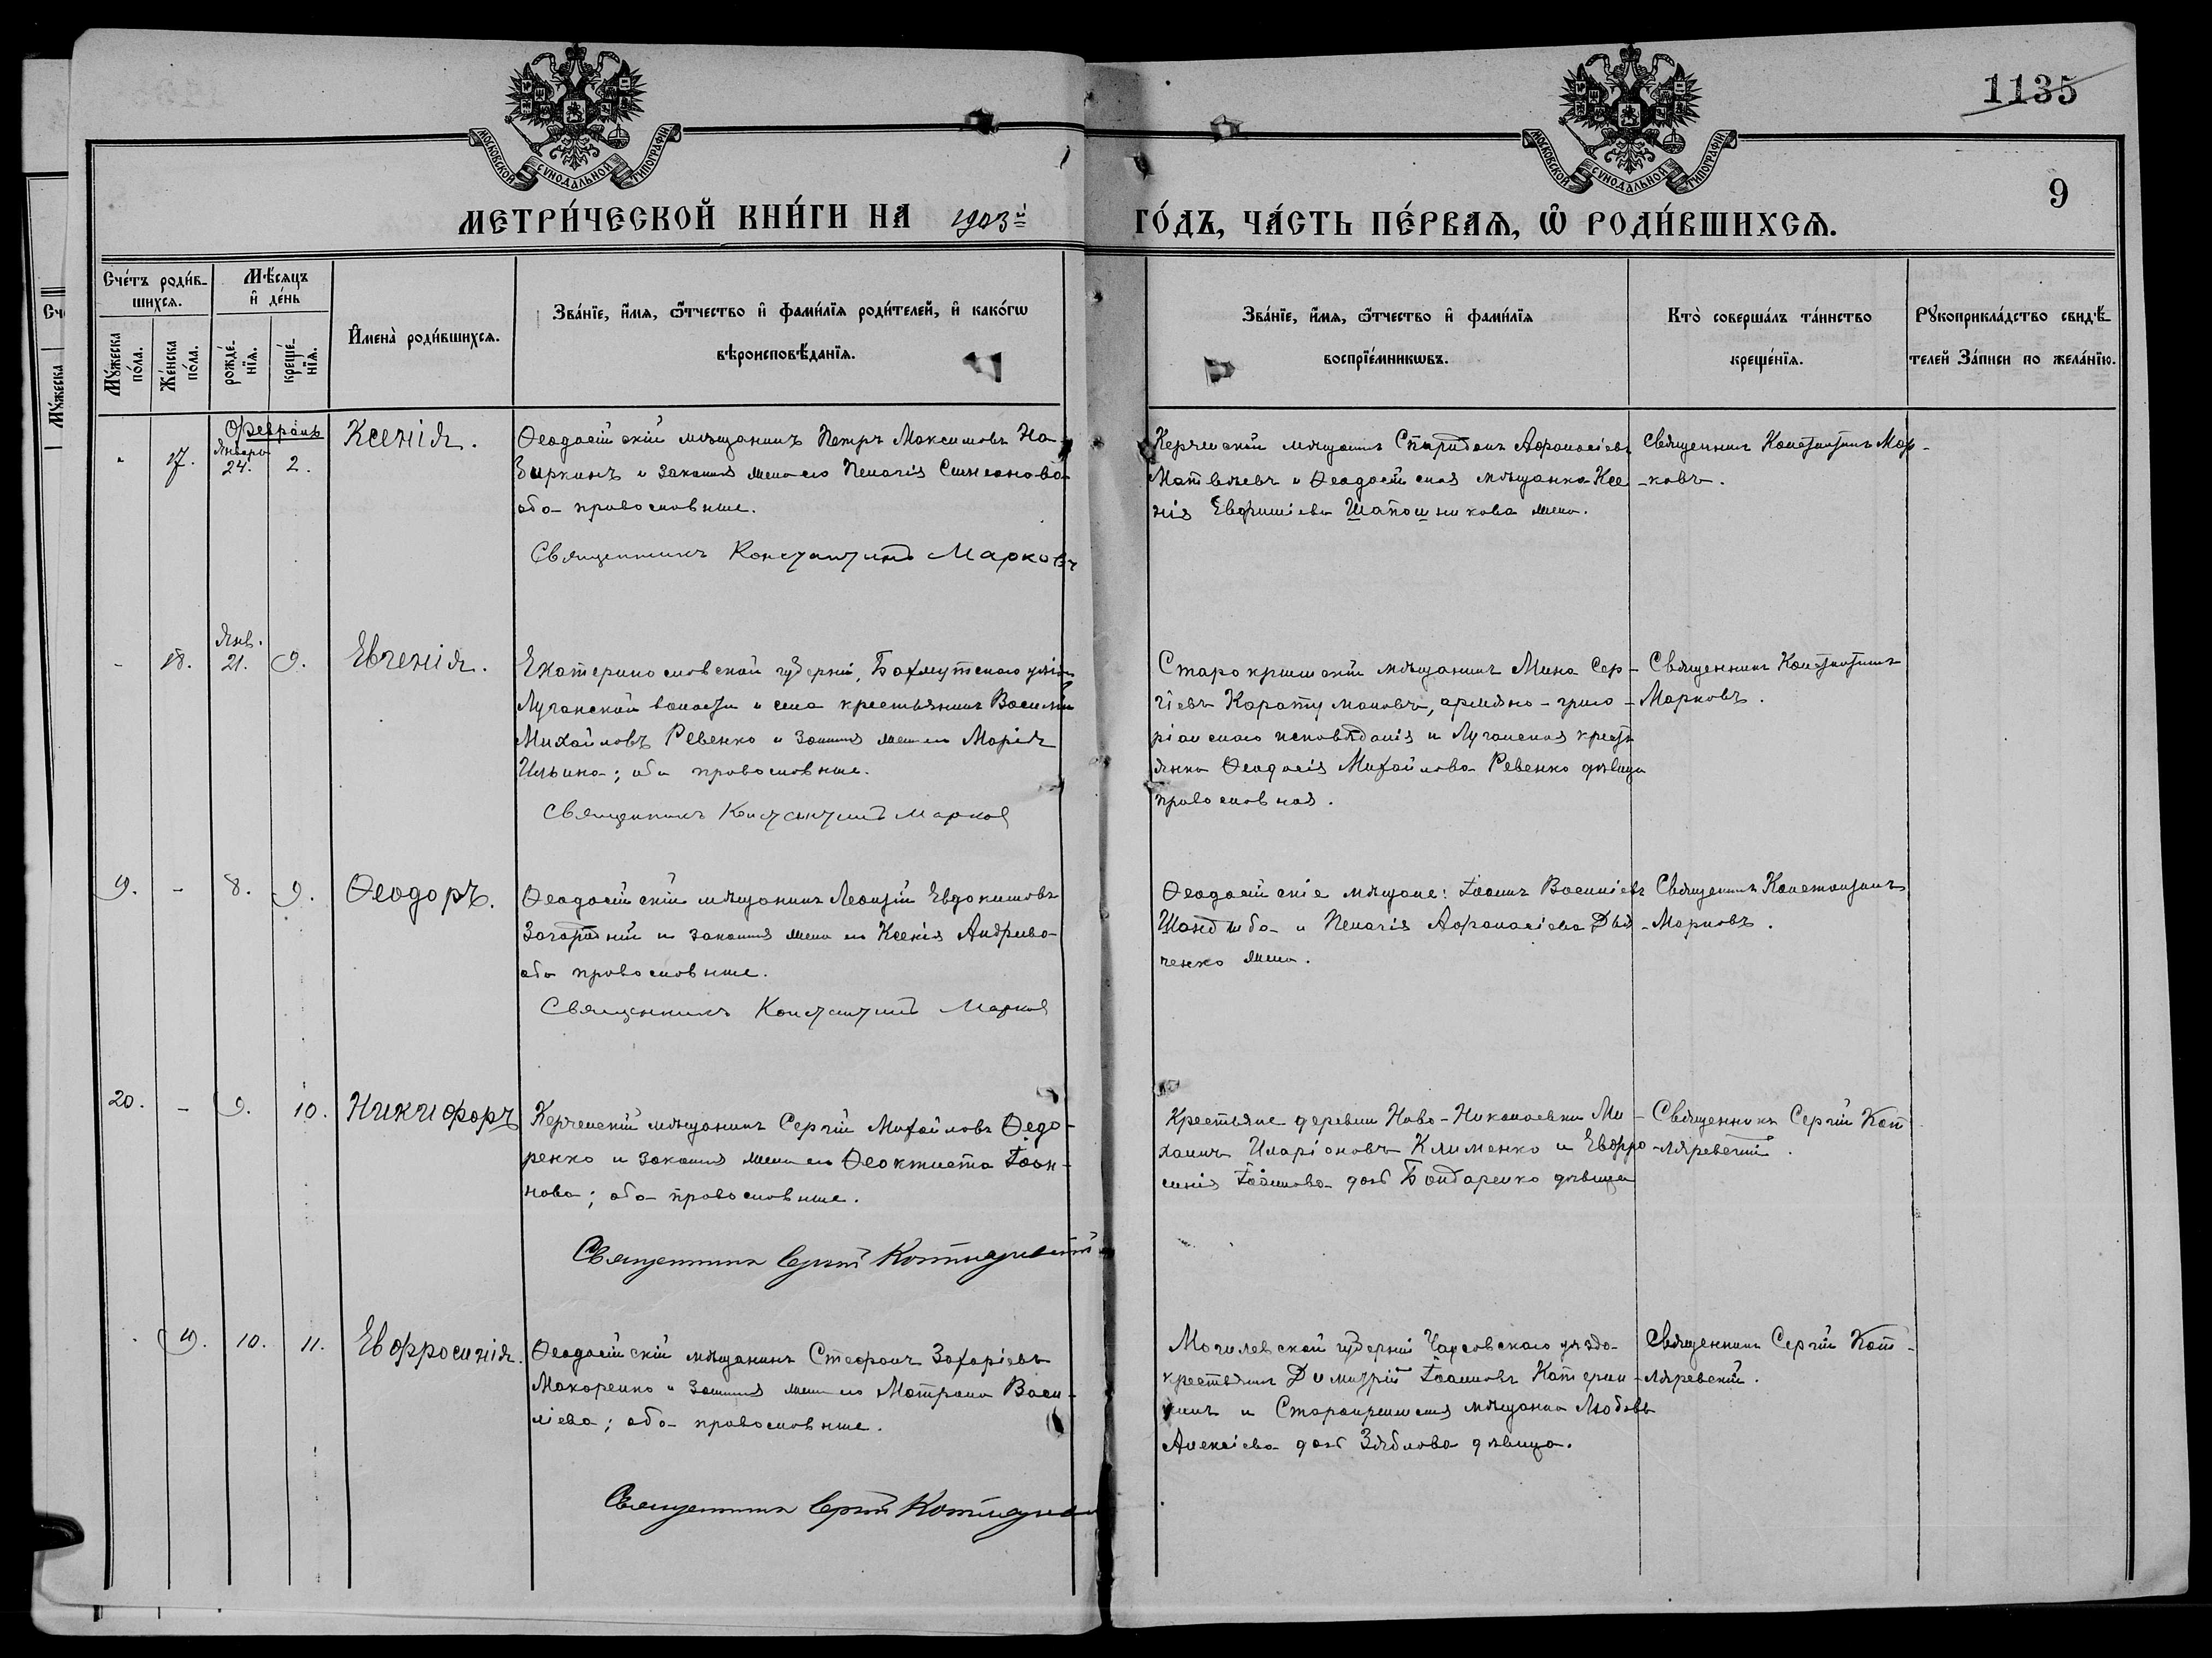 1135
9
МОСКОВСКОЙ СУНОДАЛЬНОЙ ТИПОГРАФІИ
МОСКОВСКОЙ СУНОДАЛЬНОЙ ТИПОГРАФІИ
МЕТРИ́ЧЕСКОЙ КНИ́ГИ НА 1903й
ГО́ДЪ, ЧА́СТЬ ПЕ́РВАѦ, Ѡ҆ РОДИ́ВШИХСѦ.
Сче́тъ роди́в-
шихсѧ.
Мѣ́сѧцъ
и҆ де́нь
Мꙋ́жеска
по́ла.
Же́нска
по́ла.
рожде́-
нїѧ.
креще́-
нїѧ.
И҆мена̀ роди́вшихсѧ.
Зва́нїе, и҆́мѧ, ѻ҆́тчество и҆ фами́лїѧ роди́телей, и҆ како́гѡ
вѣроисповѣ́данїѧ.
Зва́нїе, и҆́мѧ, ѻ҆́тчество и҆ фами́лїѧ
воспрїе́мникѡвъ.
Кто̀ соверша́лъ та́инство
креще́нїѧ.
Рꙋкоприкла́дство свидѣ́-
телей За́писи по жела́нїю.
Февраль
Январь
17. 24. 2. Ксенія.
Ѳеодосійскій мѣщанинъ Петръ Максимовъ На-
биркинъ и законная жена его Пелагія Симеонова
оба православные.
Священникъ Константинъ Марковъ
Керченскій мѣщанинъ Спиридонъ Аѳанасіевъ
Матвѣевъ и Ѳеодосійская мѣщанка Ксе-
нія Евфиміева Шапошникова жена.
Священникъ Константинъ Мар-
ковъ.
Янв.
- 18. 21. 9. Евгенія.
Екатеринославской губерніи, Бахмутскаго уѣзда
Луганской волости и села крестьянинъ Василій
Михайловъ Ревенко и законная жена его Марія
Ильина; оба православные.
Священникъ Константинъ Марков
Старокрымскій мѣщанинъ Мина Сер-
гіевъ Каратумановъ, армяно-григо-
ріанскаго исповѣданія и Луганская кресть
янка Ѳеодосія Михайлова Ревенко дѣвица
православная.
Священникъ Константинъ
Марковъ.
19. - 8. 9. Ѳеодоръ.
Ѳеодосійскій мѣщанинъ Леонтій Евдокимовъ
Загородній и законная жена его Ксенія Андреева
оба православные.
Священникъ Константинъ Марков
Ѳеодосійскіе мѣщане: Іоаннъ Васильевъ
Шандыба и Пелагія Аѳанасіева Дья
ченко жена.
Священникъ Константинъ
Марковъ.
20. - 9. 10. Никифоръ
Керченскій мѣщанинъ Сергій Михайловъ Ѳедо-
ренко и законная жена его Ѳеоктиста Іоан-
нова; оба православные.
Священникъ Сергій Котляревскій
Крестьяне деревни Ново-Николаевки Ми-
хаилъ Иларіоновъ Клименко и Евфро-
синія Іоаннова дочь Бондаренко дѣвица
Священникъ Сергій Кот
ляревскій.
19. 10. 11. Евфросинія.
Ѳеодосійскій мѣщанинъ Стефанъ Захаріевъ
Макаренко и законная жена его Матрона Васи-
ліева; оба православные.
Священникъ Сергій Котляревск
Могилевской губерніи Чаусовскаго уѣзда
крестьянинъ Димитрій Іоанновъ Катерин-
кинъ и Старокрымская мѣщанка Любовь
Алексіева дочь Зяблова дѣвица.
Священникъ Сергій Кот-
ляревскій.